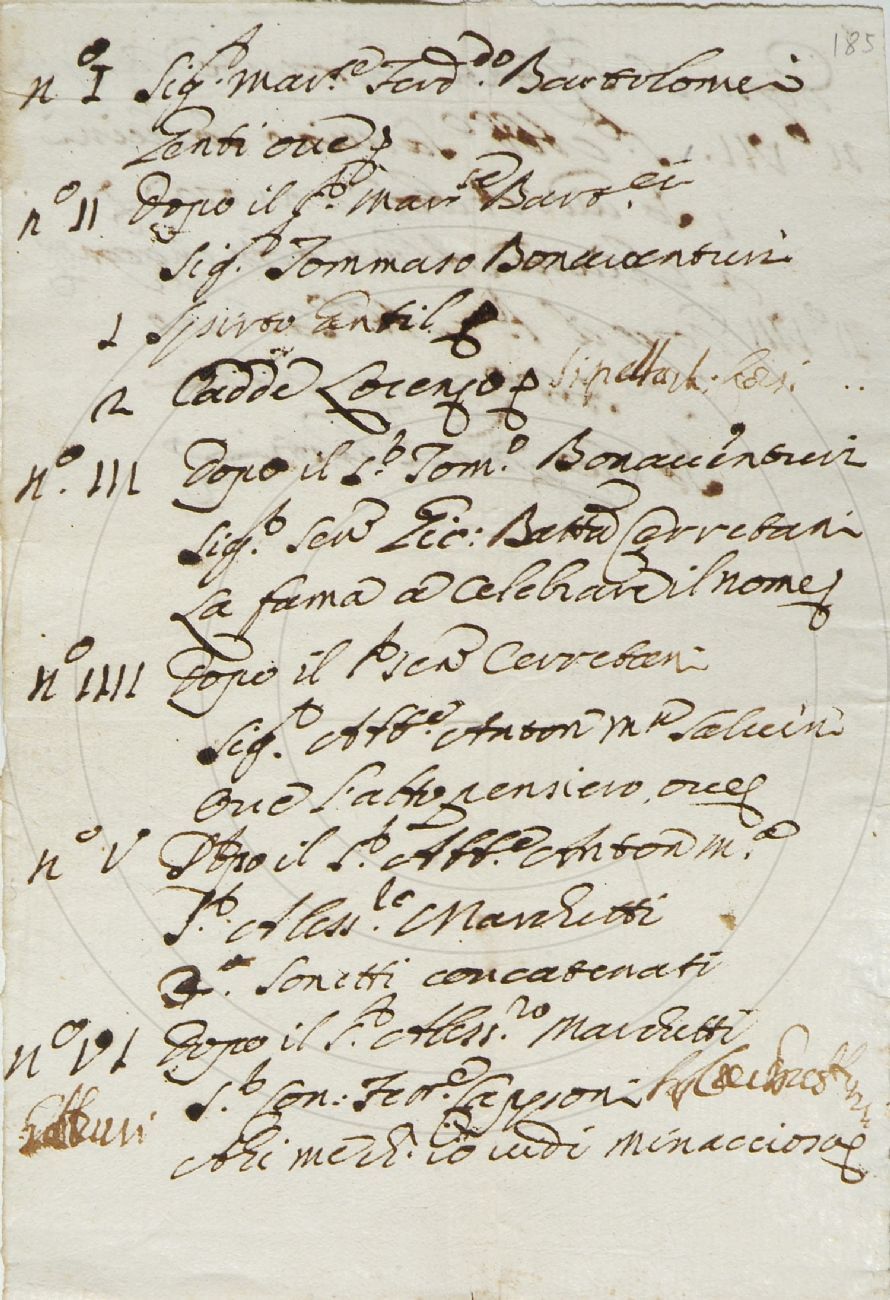 185
n.º I Sig.r Mar.se Ferd.do Bartolomei
Genti ove
n.º II Dopo il S.r Mar.se Bart.ei
Sig.r Tommaso Bonaventuri
1 Spirto Gentil
2 Cadde Lorenzo
n.º III Dopo il S.r Tom.o Bonaventuri
Sig.r Sen.re Gio: Batta Cerretani
La fama a Celebrare il nome
n.º IIII Dopo il S.r Sen.re Cerretani
Sig.r Abb.e Anton M.a Salvini
Ove l'alto pensiero, ove
n.º V Dopo il S.r Abb.e Anton M.a
S.r Aless.ro Marchetti
Sonetti concatenati
n.º VI Dopo il S.r Aless.ro Marchetti
S.r Con: Capponi
Ahi merh. io vidi minaccioso